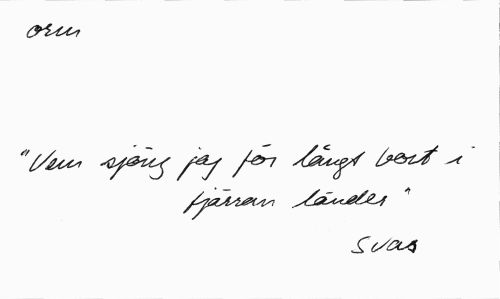 orm
"Vem sjöng jag för långt bort i
fjärran länder"
svar